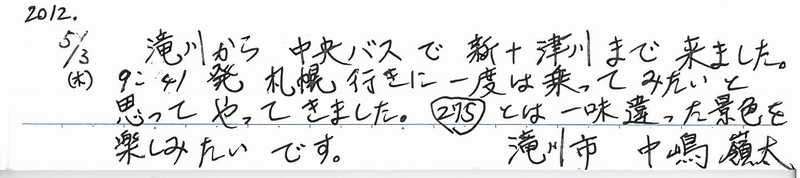 2012.
5/3 滝川から 中央バスで 新十津川まで 来ました。
(木) 9:41発 札幌行きに一度は乗ってみたいと
思ってやってきました。275とは一味違った景色を
楽しみたいです。 滝川市 中嶋嶺太